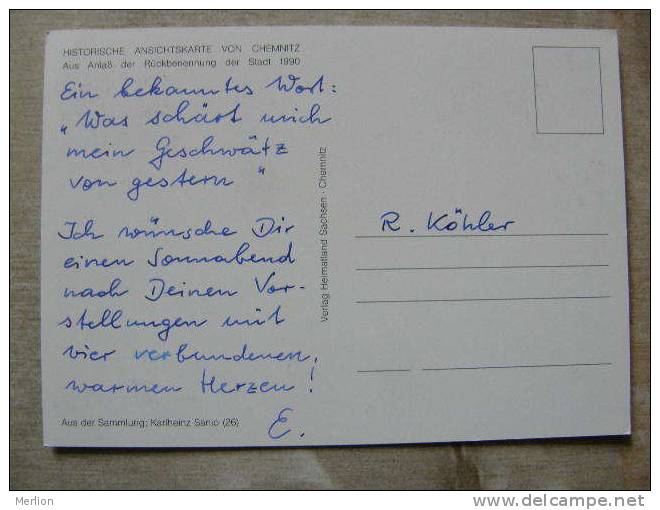 HISTORISCHE ANSICHTSKARTE VON CHEMNITZ
Aus Anlaß der Rückbenennung der Stadt 1990
Ein bekanntes Wort:
„Was schärt mich
mein Geschwätz
von gestern"
Ich wünsche Dir
einen Sonnabend
nach Deinen Vor-
stellungen mit
vier verbundenen,
warmen Herzen!
E.
Aus der Sammlung: Karlheinz Sario (26)
Verlag Heimatland Sachsen · Chemnitz
R. Köhler
Merlion
www.delcampe.net